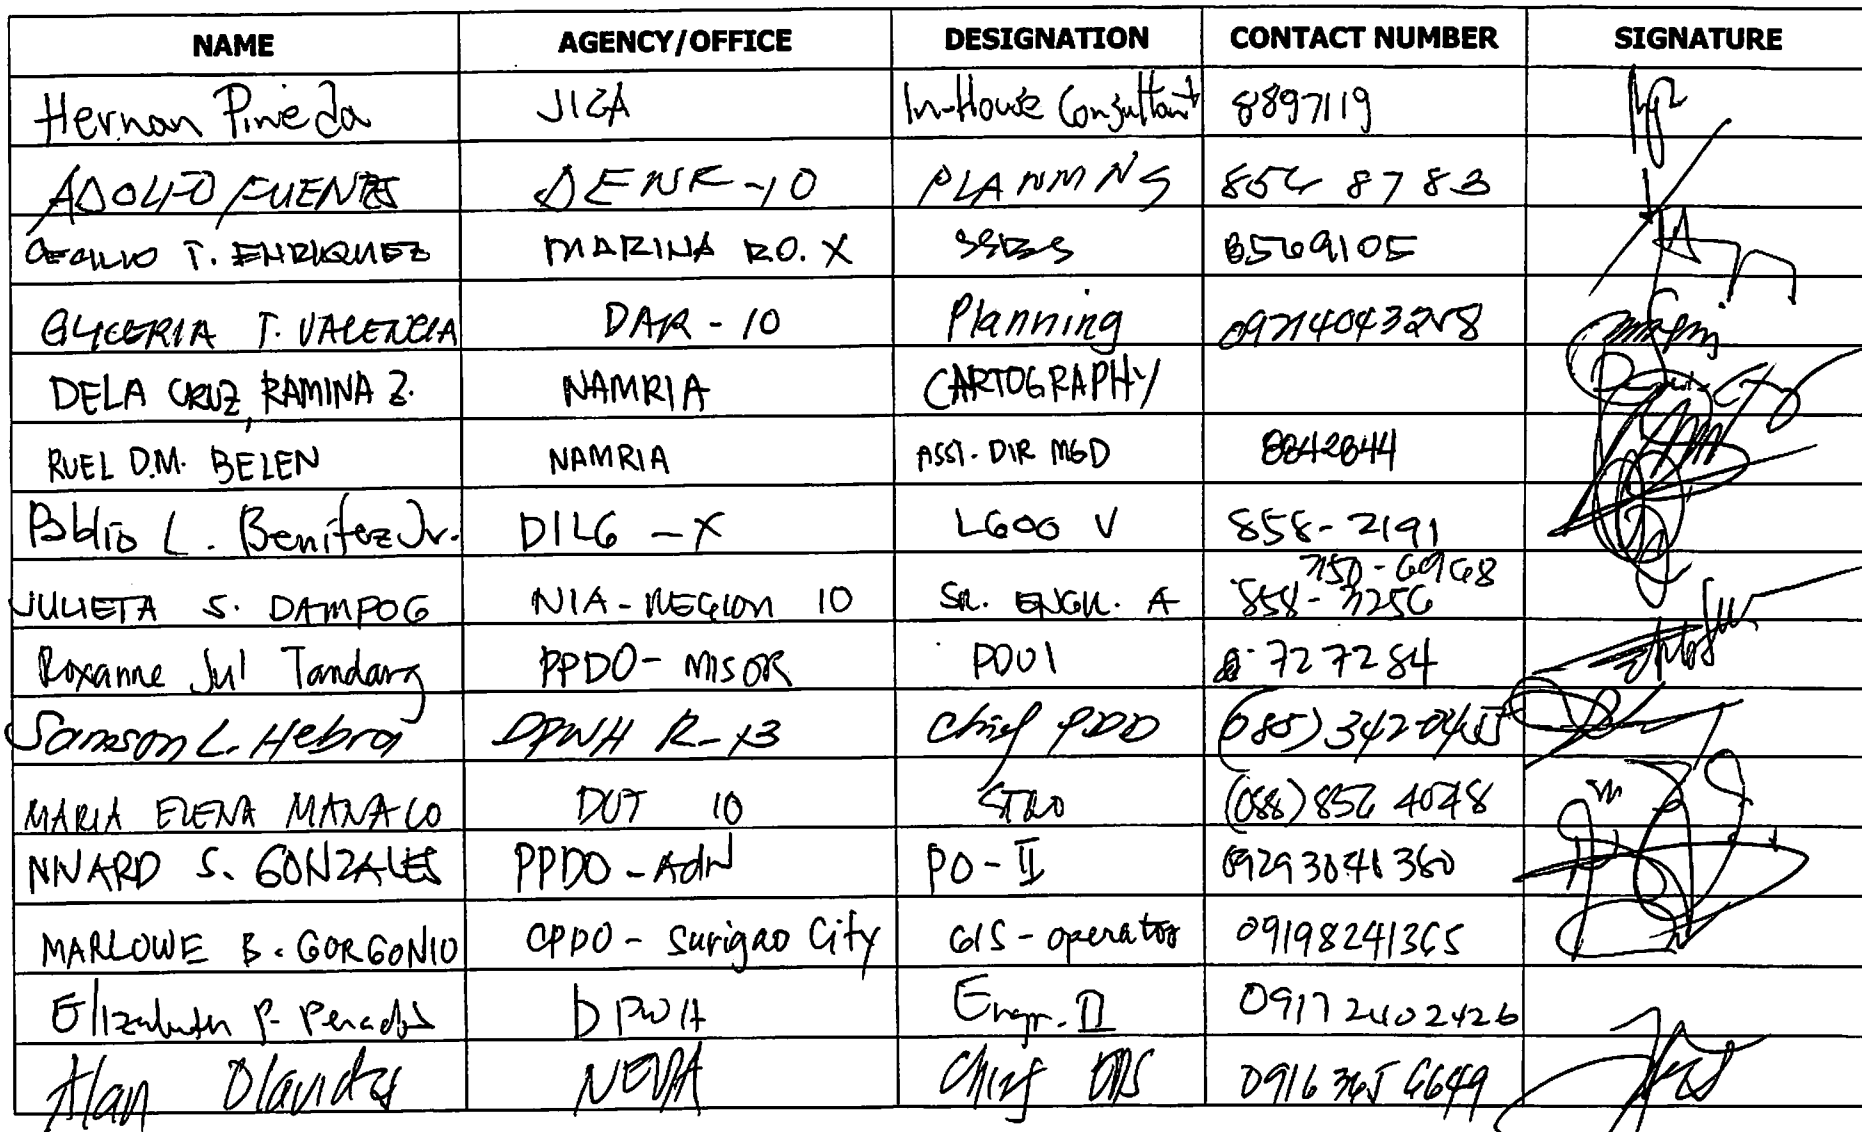 NAME AGENCY/OFFICE DESIGNATION CONTACT NUMBER SIGNATURE
Hernan Pineda JICA In-House Consultant 8897119
ADOLFO FUENTES DENR-10 PLANNING 856 8783
T. ENRIQUEZ MARINA RO. X 8569105
GLYCERIA T. VALENCIA DAR - 10 Planning
DELA CRUZ, RAMINA Z. NAMRIA CARTOGRAPHY
RUEL D.M. BELEN NAMRIA ASST. DIR MGD 8842844
Pablito L. Benitez Jr. DILG - X LGOO V 858-2191
750-6968
JULIETA S. DAMPOG NIA-REGION 10 SR. ENGR. A 858-7256
Roxanne Jul Tandang PPDO-MISOR PDO1 727284
Samson L. Hebra DPWH R-13 Chief PDD (085)342-0455
MARIA ELENA MANALO DOT 10 (088)856 4048
NIVARD S. GONZALES PPDO-AdN PO-II
MARLOWE B. GORGONIO CPDO - Surigao City GIS-operator 09198241365
Elizabeth P. DPWH Engr. II 09172402426
Alan Olavides NEDA Chief 0916 365 6649